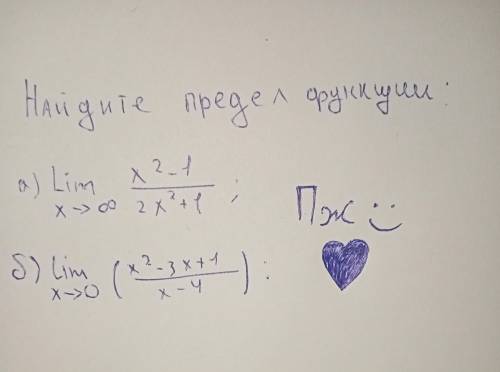 Найдите предел функции:
а) Lim x→∞ (x²-1)/(2x²+1);
Пж :)
б) Lim x→0 ((x²-3x+1)/(x-4)):